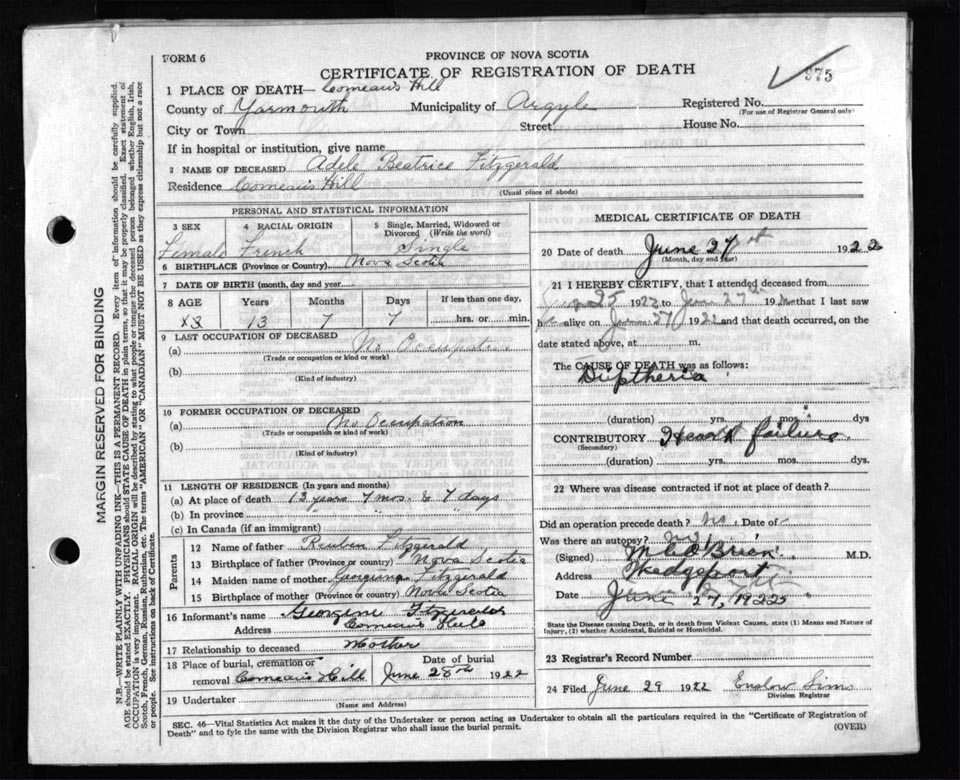 FORM 6
PROVINCE OF NOVA SCOTIA
CERTIFICATE OF REGISTRATION OF DEATH
375
1 PLACE OF DEATH— Comeau's Hill
County of Yarmouth Municipality of Argyle Registered No.
(For use of Registrar General only)
City or Town Street House No.
If in hospital or institution, give name
2 NAME OF DECEASED Adele Beatrice Fitzgerald
Residence Comeau's Hill
(Usual place of abode)
PERSONAL AND STATISTICAL INFORMATION
3 SEX 4 RACIAL ORIGIN 5 Single, Married, Widowed or Divorced (Write the word)
Female French Single
6 BIRTHPLACE (Province or Country) Nova Scotia
7 DATE OF BIRTH (month, day and year)
8 AGE Years Months Days If less than one day,
13 7 7 hrs. or min.
9 LAST OCCUPATION OF DECEASED
(a) No Occupation
(Trade or occupation or kind or work)
(b)
(Kind of industry)
10 FORMER OCCUPATION OF DECEASED
(a) No Occupation
(Trade or occupation or kind of work)
(b)
(Kind of industry)
11 LENGTH OF RESIDENCE (In years and months)
(a) At place of death 13 years 7 mos. & 7 days
(b) In province " " "
(c) In Canada (if an immigrant)
Parents
12 Name of father Reuben Fitzgerald
13 Birthplace of father (Province or country) Nova Scotia
14 Maiden name of mother Fitzgerald
15 Birthplace of mother (Province or country) Nova Scotia
16 Informant's name Georgine Fitzgerald
Address Comeau's Hill
17 Relationship to deceased Mother
18 Place of burial, cremation or removal Comeau's Hill Date of burial June 28th 1922
19 Undertaker
(Name and Address)
MEDICAL CERTIFICATE OF DEATH
20 Date of death June 27 1922
(Month, day and year)
21 I HEREBY CERTIFY, that I attended deceased from
25 1922 to June 27th 192 that I last saw
h alive on June 27 1922 and that death occurred, on the
date stated above, at m.
The CAUSE OF DEATH was as follows:
Diptheria
(duration) yrs. mos. dys
CONTRIBUTORY Heart failure
(Secondary)
(duration) yrs. mos. dys.
22 Where was disease contracted if not at place of death?
Did an operation precede death? No. Date of
Was there an autopsy?
(Signed) O'Brien M.D.
Address Wedgeport
Date June 27, 1922
State the Disease causing Death, or in death from Violent Causes, state (1) Means and Nature of
Injury, (2) whether Accidental, Suicidal or Homicidal.
23 Registrar's Record Number
24 Filed June 29 1922 Enslow Sims
Division Registrar
SEC. 46—Vital Statistics Act makes it the duty of the Undertaker or person acting as Undertaker to obtain all the particulars required in the "Certificate of Registration of
Death" and to fyle the same with the Division Registrar who shall issue the burial permit.
(OVER)
MARGIN RESERVED FOR BINDING
N.B.—WRITE PLAINLY WITH UNFADING INK—THIS IS A PERMANENT RECORD. Every item of information should be carefully supplied.
AGE should be stated EXACTLY. PHYSICIANS should STATE CAUSE OF DEATH in plain terms, so that it may be properly classified. Exact statement of
OCCUPATION is very important. RACIAL ORIGIN will be described by stating to what people or tongue the deceased person belonged whether English, Irish,
Scotch, French, German, Russian, Ruthenian, etc. The terms "AMERICAN" OR "CANADIAN" MUST NOT BE USED as they express citizenship but not a race
or people. See instructions on back of Certificate.